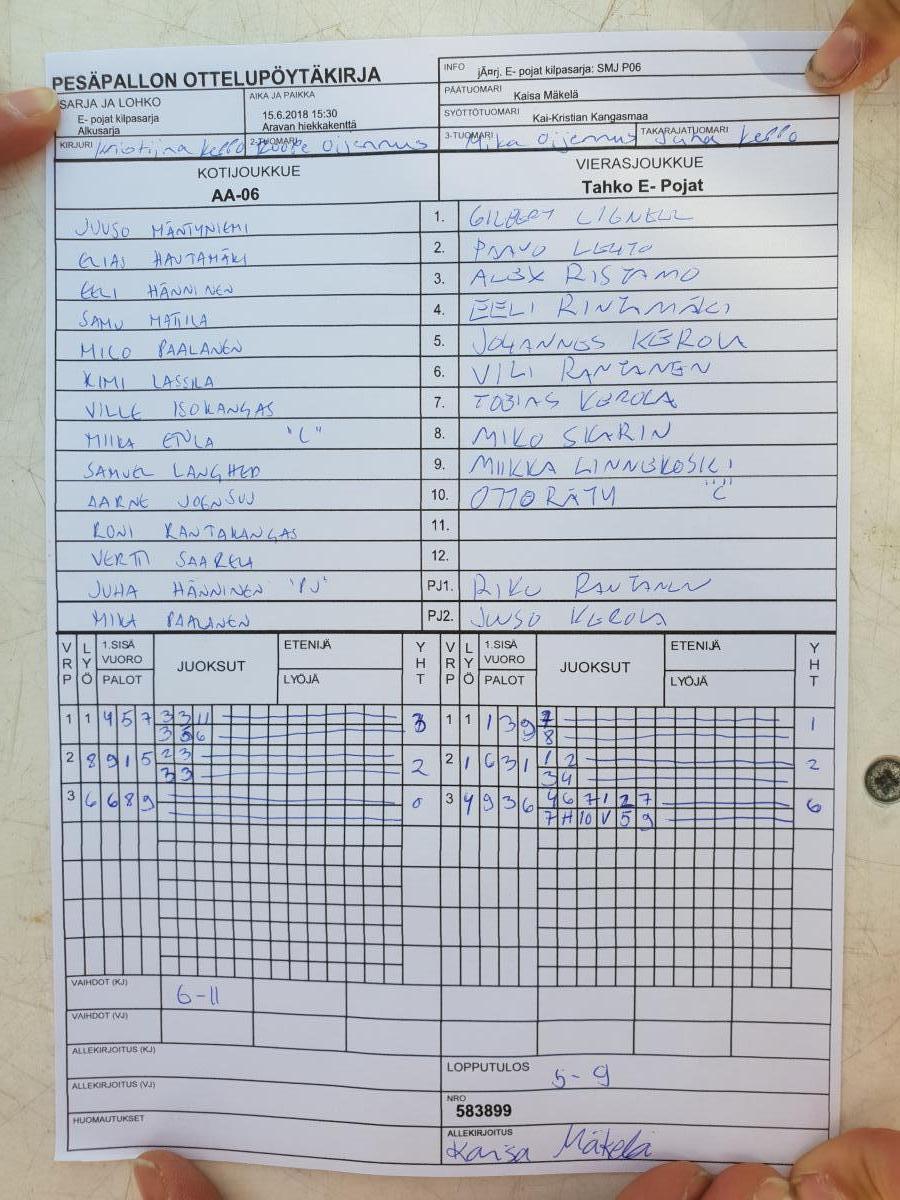 PESÄPALLON OTTELUPÖYTÄKIRJA
INFO jÄ¤rj. E- pojat kilpasarja: SMJ P06
SARJA JA LOHKO
E- pojat kilpasarja
Alkusarja
AIKA JA PAIKKA
15.6.2018 15:30
Aravan hiekkakenttä
PÄÄTUOMARI Kaisa Mäkelä
SYÖTTÖTUOMARI Kai-Kristian Kangasmaa
KIRJURI Kristiina Kello 2-TUOMARI Oijennus
3-TUOMARI Mika Oijennus TAKARAJATUOMARI Juha Kello
KOTIJOUKKUE
AA-06
VIERASJOUKKUE
Tahko E- Pojat
JUUSO MÄNTYNIEMI 1. GILBERT LIGNELL
ELIAS HAUTAMÄKI 2. PAAVO LEHTO
EELI HÄNNINEN 3. ALEX RISTAMO
SAMU MATILA 4. EELI RINTAMÄKI
MICO PAALANEN 5. JOHANNES KEROLA
KIMI LASSILA 6. VILI RANTANEN
VILLE ISOKANGAS 7. TOBIAS KEROLA
MIIKA ETULA "C" 8. MIKO SKARIN
SAMUEL LANGHED 9. MIIKKA LINNUKOSKI
AARNE JOENSUU 10. OTTO RÄTY "C"
RONI RANTAKANGAS 11.
VERTTI SAARELA 12.
JUHA HÄNNINEN "PJ" PJ1. RIKU RANTANEN
MIKA PAALANEN PJ2. JUUSO KEROLA
VRP LYÖ 1.SISÄ VUORO PALOT JUOKSUT ETENIJÄ LYÖJÄ YHT VRP LYÖ 1.SISÄ VUORO PALOT JUOKSUT ETENIJÄ LYÖJÄ YHT
1 1 4 5 7 3 3 11 3 1 1 1 3 9 7 1
3 5 6 8
2 8 9 1 5 2 3 2 2 1 6 3 1 1 2 2
3 3 3 4
3 6 6 8 9 0 3 4 9 3 6 4 6 7 1 2 7 6
7 H 10 V 5 9
VAIHDOT (KJ) 6-11
VAIHDOT (VJ)
ALLEKIRJOITUS (KJ)
LOPPUTULOS 5-9
ALLEKIRJOITUS (VJ)
NRO
583899
HUOMAUTUKSET
ALLEKIRJOITUS
Kaisa Mäkelä